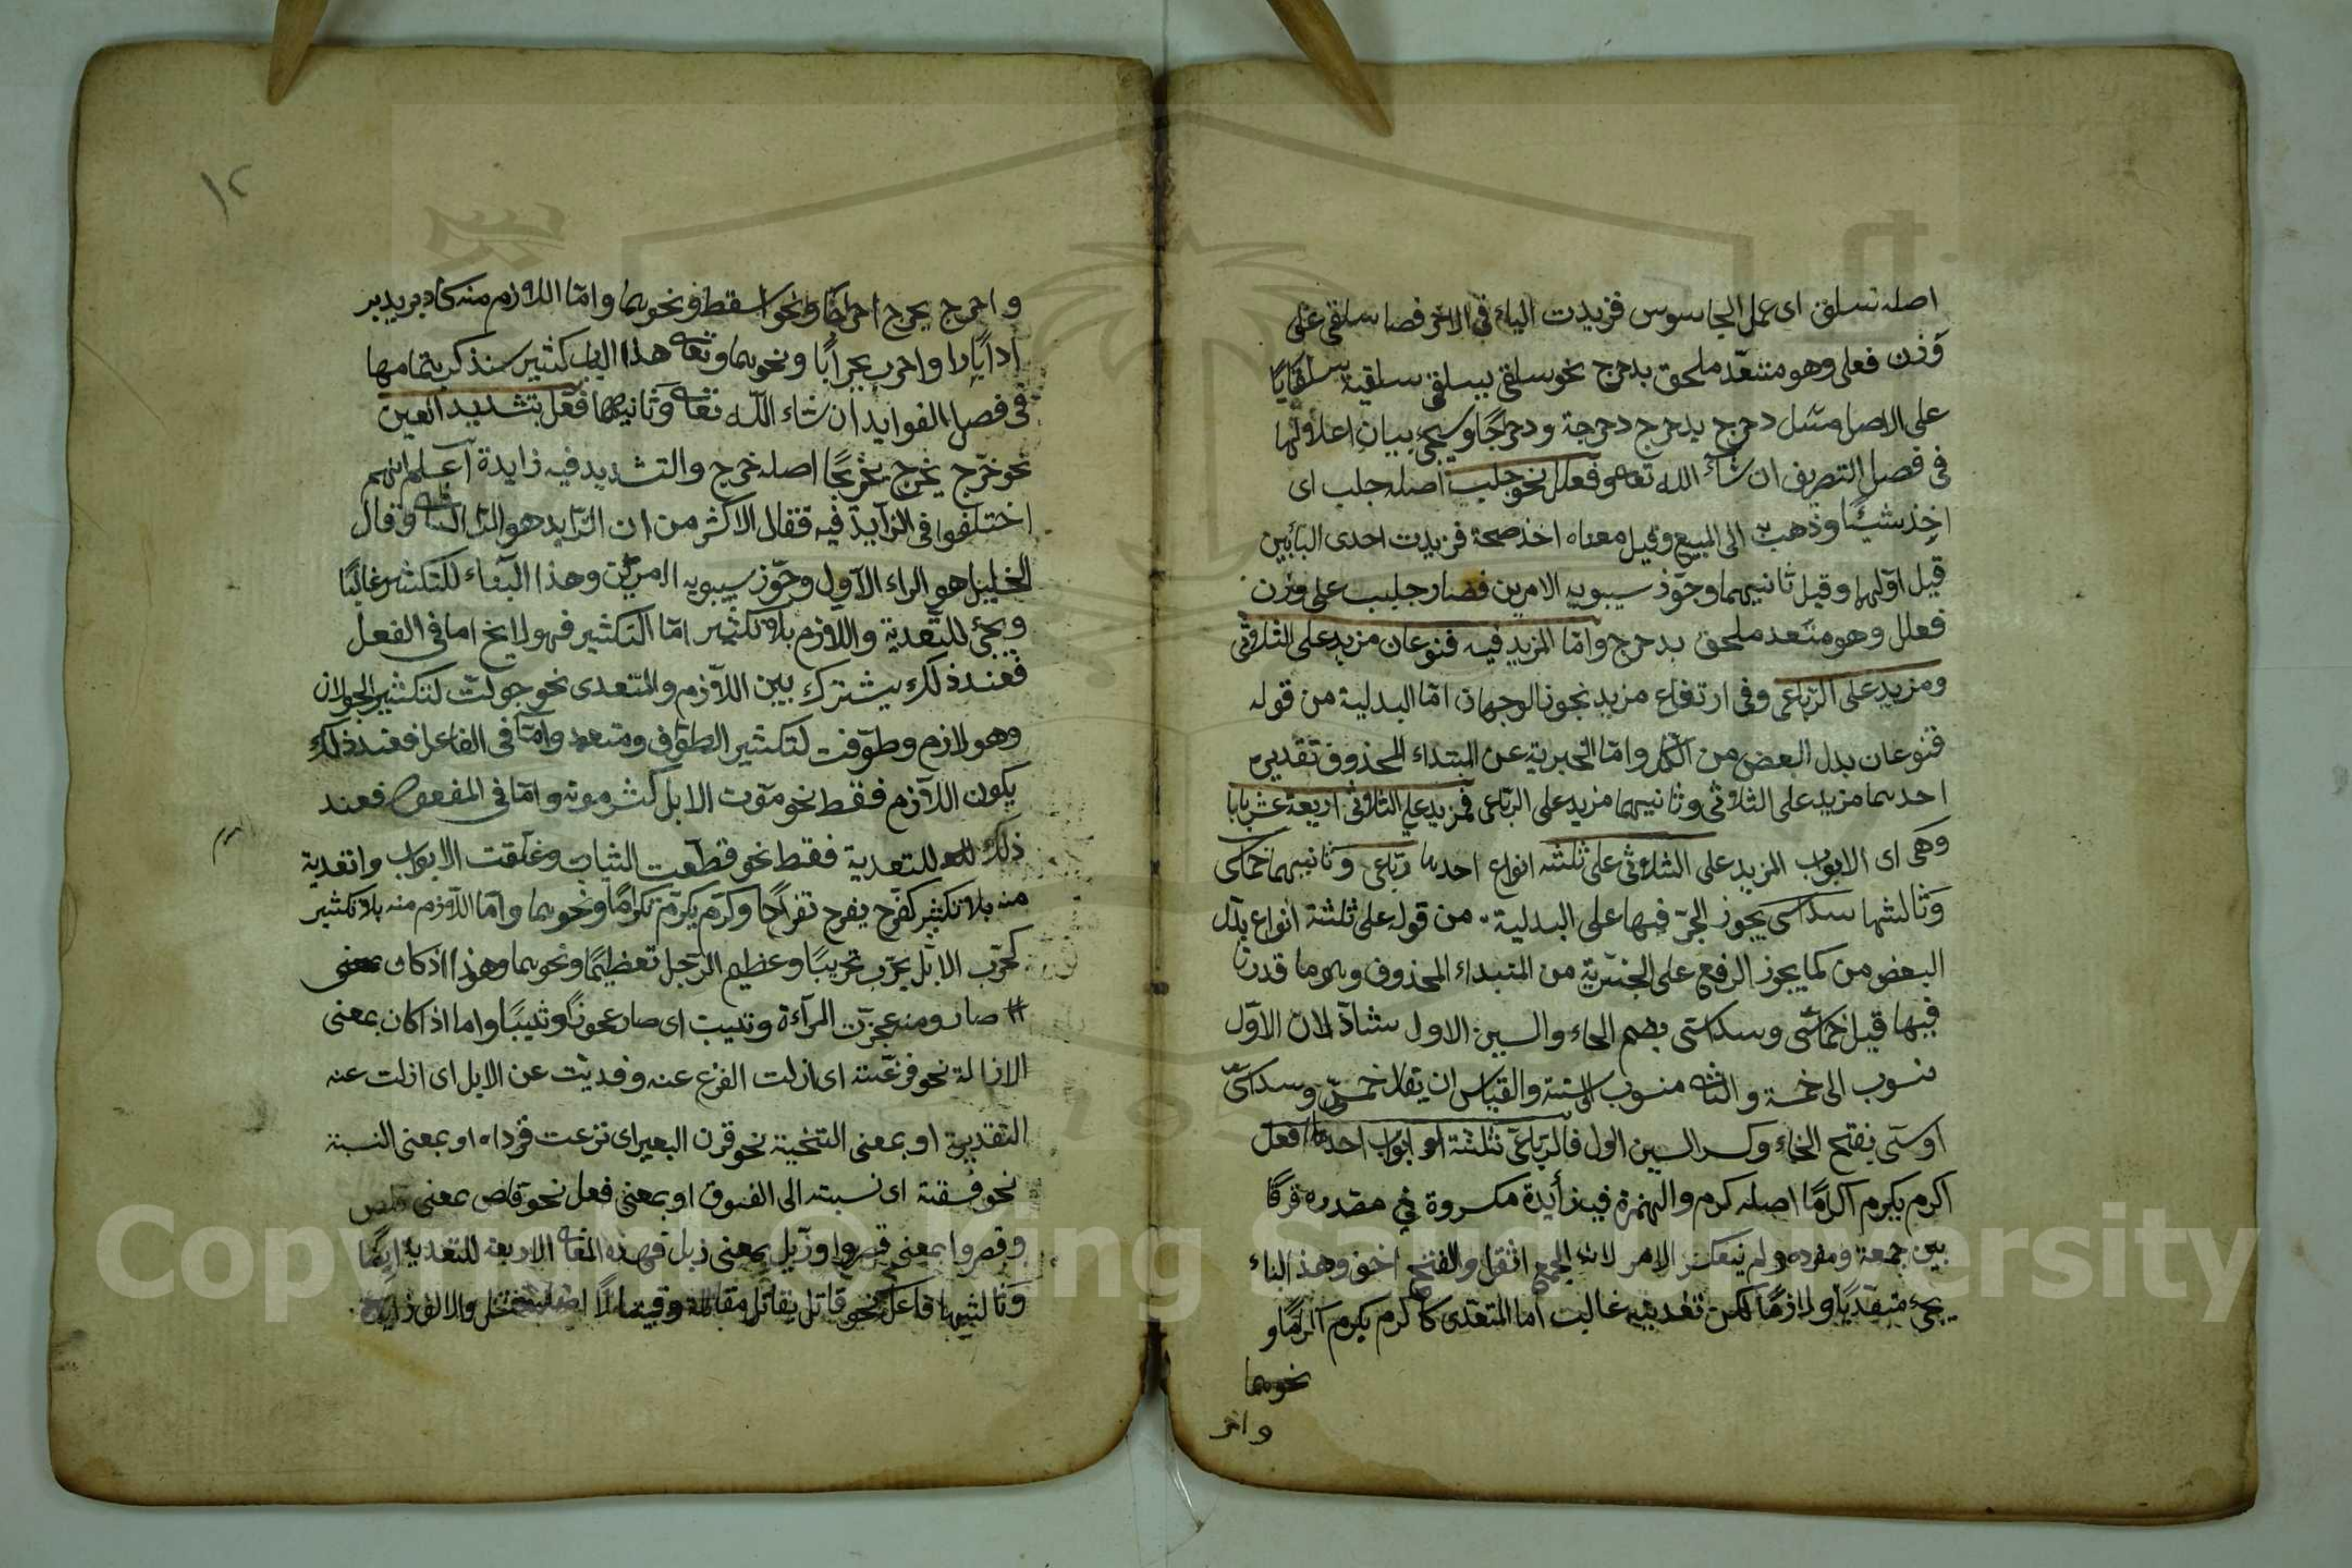 اصله سلق اى عمل الجاسوس فزيدت الياء فى الاخر فصا سلقى على
وزن فعلى وهو متعد ملحق بدحرج نحو سلقى يسلقى سلقية سلقايا
على الاصل مثل دحرج يدحرج دحرجة ودحراجا وسيجى بيان اعلالها
فى فصل التصريف ان شاء الله تعا وفعلل نحو جلبب اصله جلب اى
اخذ شيئا وذهب الى المبيع وقيل معناه اخذ صحة فزيدت احدى البائين
قيل اولهما وقيل ثانيهما وجوز سيبويه الامرين فصار جلبب على وزن
فعلل وهو متعد ملحق بدحرج واما المزيد فيه فنوعان مزيد على الثلاثى
ومزيد على الرباعى وفى ارتفاع مزيد نجوز الوجهان اما البدلية من قوله
فنوعان بدل البعض من الكل واما الخبرية عن المبتداء المحذوف تقديره
احدهما مزيد على الثلاثى وثانيهما مزيد على الرباعى فمزيد على الثلاثى اربعة عشر بابا
وهى اى الابواب المزيد على الثلاثى على ثلثه انواع احدها رباعى وثانيهما خماسى
وثالثها سداسى يجوز الجر فيها على البدلية من قوله على ثلثة انواع بدل
البعض من كما يجوز الرفع على الخبرية من المتبداء المحذوف وهو ما قدرنا
فيها قيل خماسى وسداسى بضم الخاء والسين الاول شاذ لان الاول
منسوب الى خمسة والثا منسوب الى ستة والقياس ان يقال خمسى وسداسى
اوستى بفتح الخاء وكسر السين الاول فالرباعى ثلثة ابواب احدها افعل
اكرم يكرم اكراما اصله كرم والهمزة فيه زايدة مكسروة فى مصدره فرقا
بين جمعه ومفرده ولم ينعكس الامر لان الجمع اثقل والفتح اخف وهذ البناء
يجئ متعديا ولازما لكن تعديته غالبت اما المتعدى كاكرم يكرم اكراما و
نحوهما
واخر
١٢
واخرج يخرج اخراجا ونحو اسقط ونحوهما واما اللازم منه كادبر يدبر
ادبارا واجرب يجرابا ونحوهما وتعا هذا الباب كثير سنذكر بتمامها
فى فصل الفوايد ان شاء الله تعا وثانيهما فعل بتشديد العين
نحو خرج يخرج تخريجا اصله خرج والتشديد فيه زايدة اعلم انهم
اختلفوا فى الزايد فيه فقال الاكثر من ان الزايد هو الرا الثانى وقال
الخليل هو الراء الاول وجوز سيبويه الامرين وهذا البناء للتكثير غالبا
ويجئ للتعدية واللازم بلا تكثير اما التكثير فهو لايخ اما فى الفعل
فعند ذلك يشترك بين اللازم والمتعدى نحو جولت لتكثير الجولان
وهو لازم وطوفت لتكثير الطواف ومتعد واما فى الفاعل فعند ذلك
يكون اللازم فقط نحو موت الابل كثر موته واما فى المفعول فعند
ذلك للتعدية فقط نحو قطعت الثياب وغلقت الابواب واتعدية
منه بلا تكثير كفرح يفرح تفراحا وكرم يكرم تكراما ونحوهما واما اللازم منه بلا تكثير
كجرب الابل يجرب تجريبا وعظيم الرجل تعظيما ونحوهما وهذا اذكان بمعنى
صار ومنه عجزت المراءة وتثيبت اى صار عجوزا وثيبا واما اذا كان بمعنى
الازالة نحو فزعته اى ازلت الفزع عنه وفديت عن الابل اى ازلت عنه
التقدير او بمعنى التنحية نحو قرن البعير اى نزعت قرداه او بمعنى النسبة
نحو فسقته اى نسبته الى الفسوق او بمعنى فعل نحو قلص بمعنى قلص
وقصروا بمعنى قصروا وزيل بمعنى زيل فهذه المعا الاربعة للتعدية ايضا
وثالثها فاعل نحو قاتل يقاتل مقاتلة وقيتالا والالف زايدة